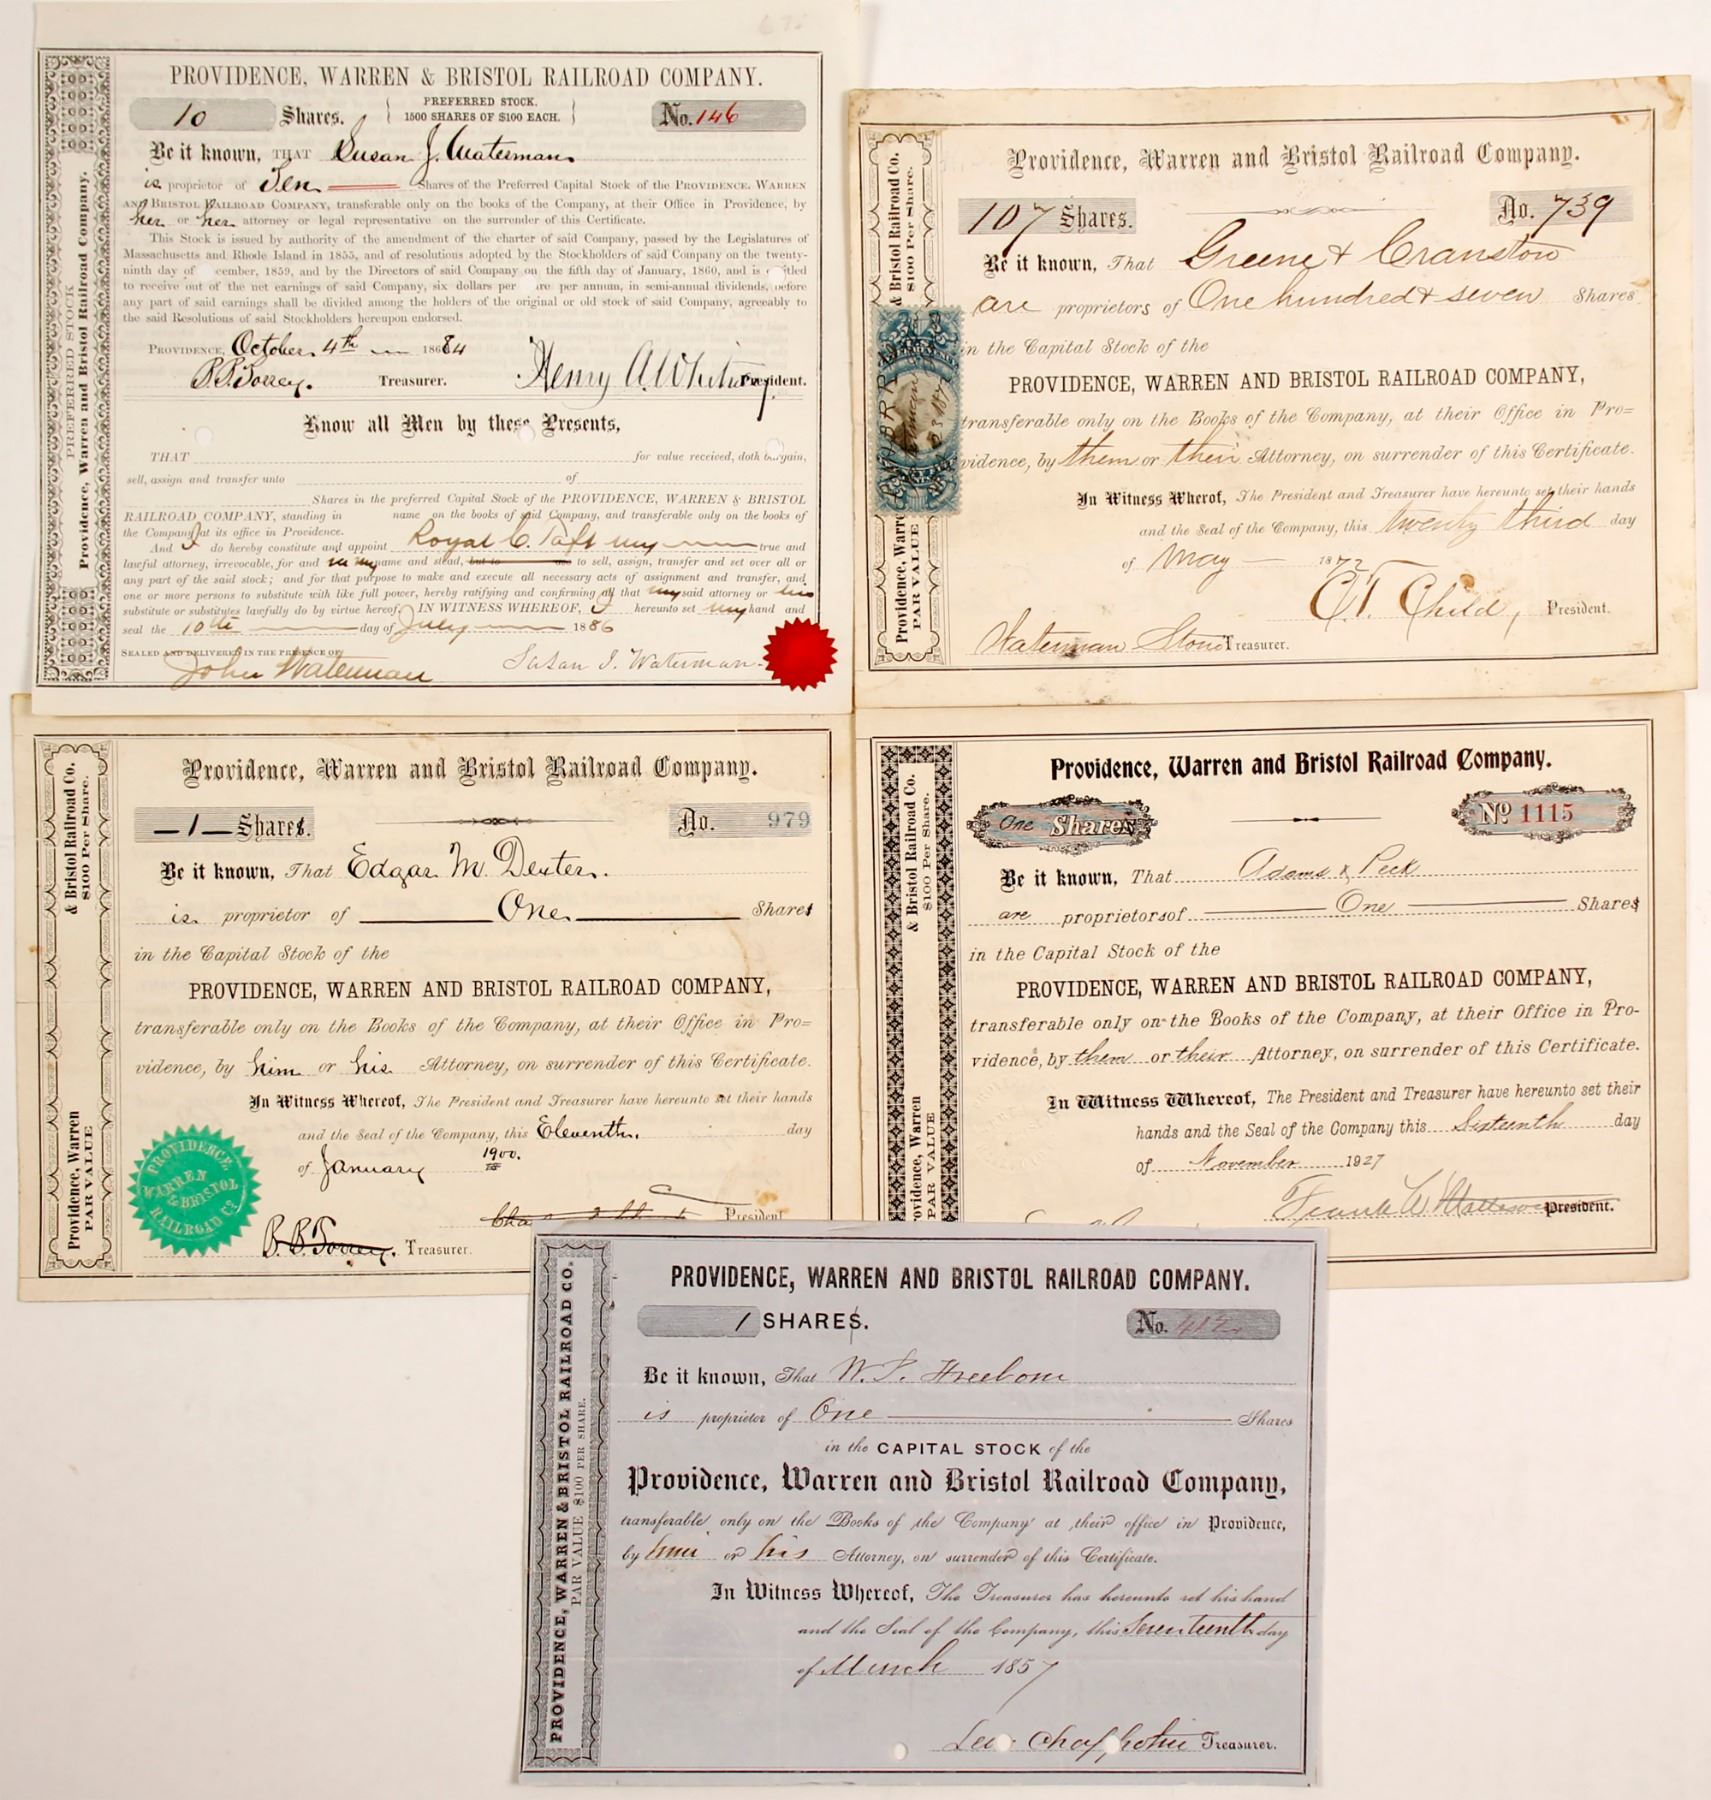 PROVIDENCE, WARREN & BRISTOL RAILROAD COMPANY.
10 Shares. { PREFERRED STOCK. 1500 SHARES OF $100 EACH. } No. 146
Be it known, THAT Susan J. Waterman
is proprietor of Ten Shares of the Preferred Capital Stock of the PROVIDENCE, WARREN
AND BRISTOL RAILROAD COMPANY, transferable only on the books of the Company, at their Office in Providence, by
her or her attorney or legal representative on the surrender of this Certificate.
This Stock is issued by authority of the amendment of the charter of said Company, passed by the Legislatures of
Massachusetts and Rhode Island in 1855, and of resolutions adopted by the Stockholders of said Company on the twenty-
ninth day of cember, 1859, and by the Directors of said Company on the fifth day of January, 1860, and is titled
to receive out of the net earnings of said Company, six dollars per are per annum, in semi-annual dividends, before
any part of said earnings shall be divided among the holders of the original or old stock of said Company, agreeably to
the said Resolutions of said Stockholders hereupon endorsed.
PROVIDENCE, October 4th 18684
B.B. Torrey. Treasurer. Henry A. Whitney President.
Know all Men by these Presents,
THAT for value received, doth bargain,
sell, assign and transfer unto of
Shares in the preferred Capital Stock of the PROVIDENCE, WARREN & BRISTOL
RAILROAD COMPANY, standing in name on the books of said Company, and transferable only on the books of
the Company at its office in Providence.
And I do hereby constitute and appoint Royal C. Taft my true and
lawful attorney, irrevocable, for and in my name and stead, but to use to sell, assign, transfer and set over all or
any part of the said stock; and for that purpose to make and execute all necessary acts of assignment and transfer, and
one or more persons to substitute with like full power, hereby ratifying and confirming all that my said attorney or his
substitute or substitutes lawfully do by virtue hereof. IN WITNESS WHEREOF, I hereunto set my hand and
seal the 10th day of July 1886
SEALED AND DELIVERED IN THE PRESENCE OF
John Waterman Susan J. Waterman
PREFERRED STOCK
Providence, Warren and Bristol Railroad Company.
Providence, Warren and Bristol Railroad Company.
107 Shares. No. 739
Be it known, That Greene & Cranston
are proprietors of One hundred & seven Shares
in the Capital Stock of the
PROVIDENCE, WARREN AND BRISTOL RAILROAD COMPANY,
transferable only on the Books of the Company, at their Office in Pro=
vidence, by them or their Attorney, on surrender of this Certificate.
In Witness Whereof, The President and Treasurer have hereunto set their hands
and the Seal of the Company, this twenty third day
of May 1872
E.T. Child, President.
Waterman Stone Treasurer.
Providence, Warr & Bristol Railroad Co.
PAR VALUE $100 Per Share.
Providence, Warren and Bristol Railroad Company.
1 Shares. No. 979
Be it known, That Edgar M. Dexter.
is proprietor of One Shares
in the Capital Stock of the
PROVIDENCE, WARREN AND BRISTOL RAILROAD COMPANY,
transferable only on the Books of the Company, at their Office in Pro=
vidence, by him or his Attorney, on surrender of this Certificate.
In Witness Whereof, The President and Treasurer have hereunto set their hands
and the Seal of the Company, this Eleventh day
of January 1900.
President
B.B. Torrey. Treasurer.
PROVIDENCE, WARREN & BRISTOL RAILROAD CO.
Providence, Warren & Bristol Railroad Co.
PAR VALUE $100 Per Share.
Providence, Warren and Bristol Railroad Company.
One Shares No 1115
Be it known, That Adams & Peck
are proprietors of One Shares
in the Capital Stock of the
PROVIDENCE, WARREN AND BRISTOL RAILROAD COMPANY,
transferable only on the Books of the Company, at their Office in Pro-
vidence, by them or their Attorney, on surrender of this Certificate.
In Witness Whereof, The President and Treasurer have hereunto set their
hands and the Seal of the Company this Sixteenth day
of November 1927
Frank W. Matteson President.
rovidence, Warren & Bristol Railroad Co.
PAR VALUE $100 Per Share.
PROVIDENCE, WARREN AND BRISTOL RAILROAD COMPANY.
1 SHARES. No.
Be it known, That W. P. Freeborn
is proprietor of One Shares
in the CAPITAL STOCK of the
Providence, Warren and Bristol Railroad Company,
transferable only on the Books of the Company at their office in Providence,
by him or his Attorney, on surrender of this Certificate.
In Witness Whereof, The Treasurer has hereunto set his hand
and the Seal of the Company, this Seventeenth day
of March 1857
Treasurer.
PROVIDENCE, WARREN & BRISTOL RAILROAD CO.
PAR VALUE $100 PER SHARE.